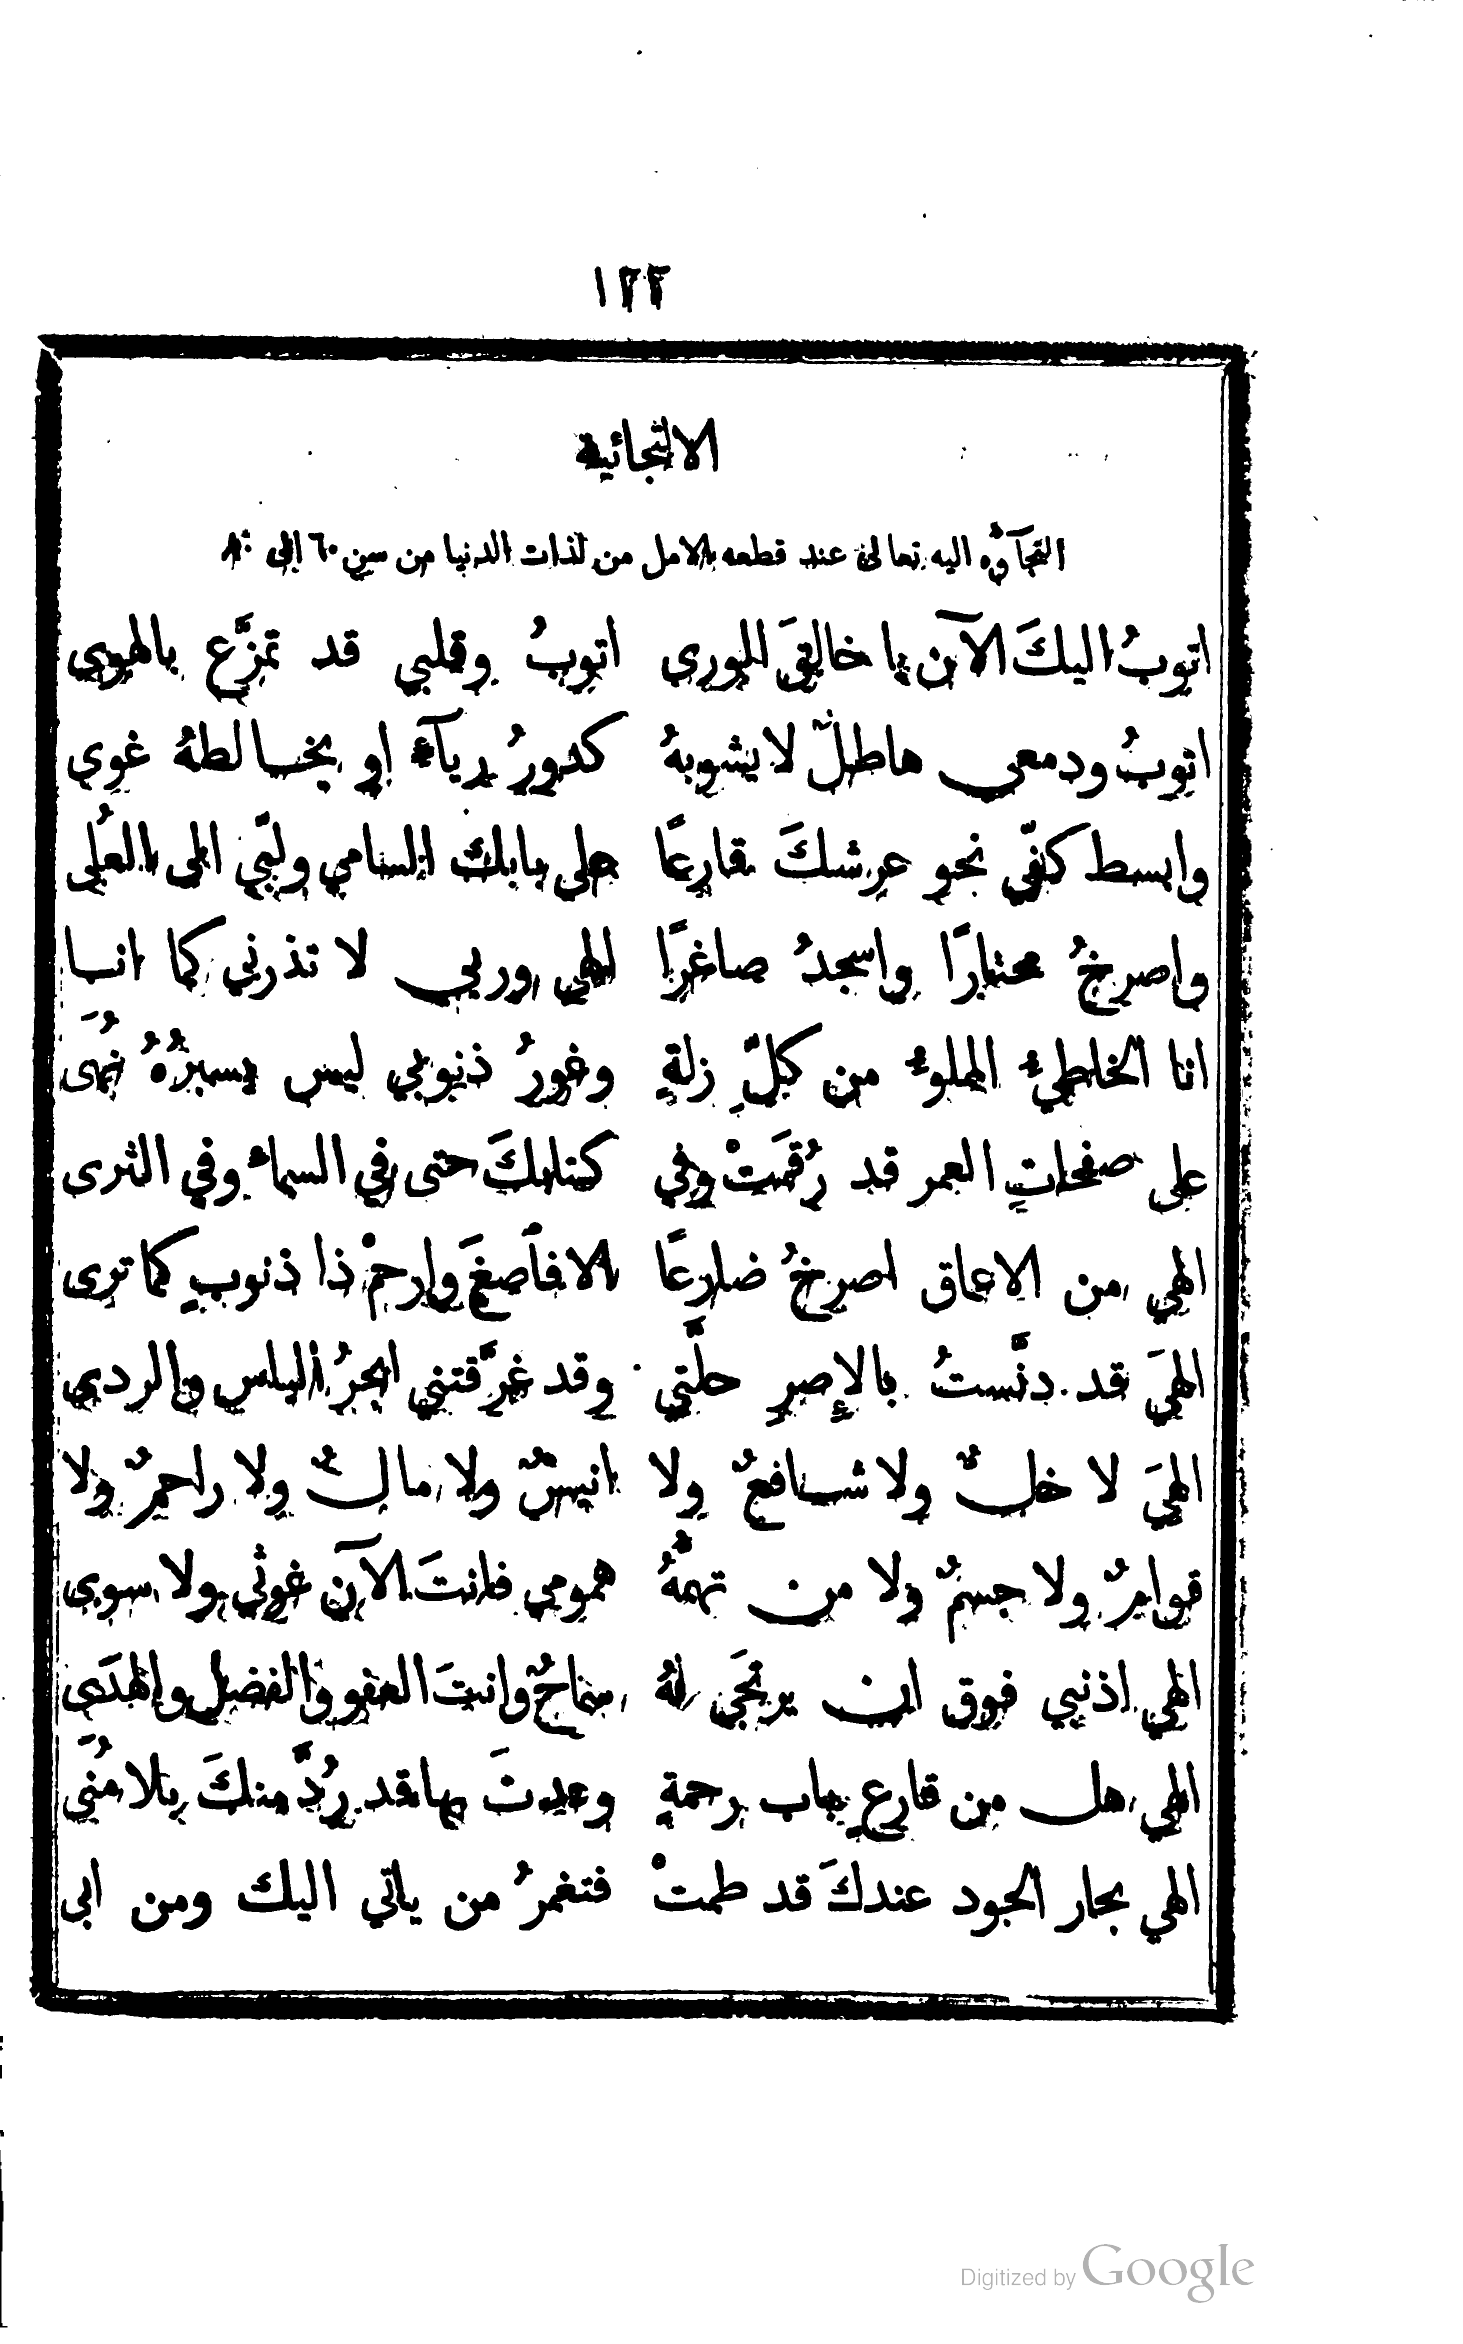 ١٢٢
الالتجائية
التجآؤه اليه تعالى عند قطعه الامل من لذات الدنيا من سن ٦٠ الى ٨٠
اتوبُ اليكَ الآن يا خالقَ الورى اتوبُ وقلبي قد تمزَّع بالهوى
اتوبُ ودمعي هاطلٌ لا يشوبهُ كدورُ ريآءٍ او يخالطهُ غوى
وابسط كفّي نحو عرشكَ قارعًا على بابك السامي ولبّي الى العُلى
واصرخُ محتارًا واسجدُ صاغرًا الهي وربي لا تذرني كما انا
انا الخاطيءُ المملوءُ من كلّ زلةٍ وغورُ ذنوبي ليس يسبرُهُ نُهَى
على صفحاتِ العمر قد رُقمَتْ وفي كتابكَ حتى في السماء وفي الثرى
الهي من الاعماق اصرخُ ضارعًا الا فأَصغَ وارحمْ ذا ذنوبٍ كما ترى
الهيَ قد دنَّستُ بالإصرِ حلَّتي وقد غرَّقتني ابحرُ الياس والردى
الهيَ لا خلٌ ولا شافعٌ ولا انيسٌ ولا مالٌ ولا راحمٌ ولا
قوامٌ ولا جسمٌ ولا من تهمُّهُ همومي فانتَ الآن غوثي ولا سوى
الهي اذنبي فوق ان يرتجَى لهُ سماحٌ وانتَ العفو والفضل والهدَى
الهي هل من قارعٍ باب رحمةٍ وعدتَ بها قد رُدَّ منكَ بلا مُنَى
الهي بحار الجود عندكَ قد طمتْ فتغمرُ من ياتي اليك ومن ابى
Digitized by Google